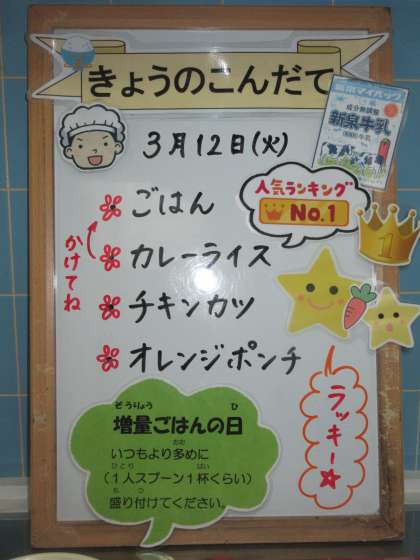 きょうのこんだて
3月12日(火)
成分無調整
新泉牛乳
人気ランキング
No.1
1
ごはん
かけてね
カレーライス
チキンカツ
オレンジポンチ
ラッキー
ぞうりょう ひ
増量ごはんの日
おお
いつもより多めに
ひとり ぱい
(1人スプーン1杯くらい)
も つ
盛り付けてください。